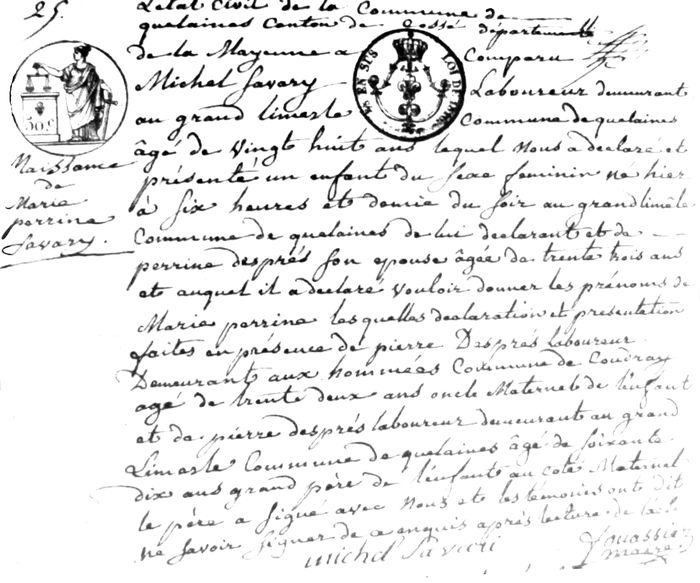 25.
L'etat Civil de la Commune de
quelaines Canton de Cossé département
de la Mayenne a Comparu
Michel Savary Laboureur demeurant
au grand limesle Commune de quelaines
âgé de Vingt huit ans lequel Nous a declaré et
présenté un enfant du Sexe feminin né hier
à Six heures et demie du Soir au grand limêle
Commune de quelaines de lui declarant et de
perrine després Son epouse âgée de trente trois ans
et auquel il a declaré vouloir donner les prénoms de
Marie perrine les quelles declaration et presentation
faites en présence de pierre Després laboureur
Demeurant aux hommées Commune de Coudray
agé de trente deux ans oncle Maternel de l'enfant
et de pierre després laboureur demeurant au grand
Limesle Commune de quelaines âgé de Soixante
dix ans grand père de l'enfant au coté Maternel
le père a Signé avec Nous et les témoins ont dit
ne Savoir Signer de ce enquis après lecture
michel Savari
maire
Naissance
de
Marie
perrine
Savary.
50c
EN SUS
LOI DE